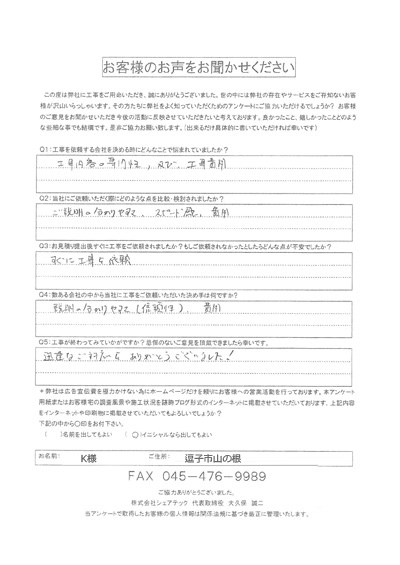 お客様のお声をお聞かせください
この度は弊社に工事をご用命いただき、誠にありがとうございました。世の中には弊社の存在やサービスをご存知ないお客
様が沢山いらっしゃいます。その方たちに弊社をよく知っていただくためのアンケートにご協力いただけるでしょうか？ お客様
のご意見をお聞かせいただき今後の活動に反映させていただきたいと考えております。良かったこと、嬉しかったことどのよう
な些細な事でも結構です。是非ご協力お願い致します。(出来るだけ具体的に書いていただければ幸いです)
Q1:工事を依頼する会社を決める際にどんなことで悩まれていましたか？
工事内容の専門性、及び、工事費用
Q2:当社にご依頼いただく際にどのような点を比較・検討されましたか？
ご説明の分かりやすさ、スピード感、費用
Q3:お見積り提出後すぐに工事をご依頼されましたか？もしご依頼されなかったとしたらどんな点が不安でしたか？
すぐに工事を依頼
Q4:数ある会社の中から当社に工事をご依頼いただいた決め手は何ですか？
説明の分かりやすさ(信頼性)、費用
Q5:工事が終わってみていかがですか？忌憚のないご意見を頂戴できましたら幸いです。
迅速なご対応を ありがとうございました！
＊弊社は広告宣伝費を極力かけない為にホームページだけを頼りにお客様への営業活動を行っております。本アンケート
用紙またはお客様宅の調査風景や施工状況を録跡ブログ形式のインターネットに掲載させていただいております。上記内容
をインターネットや印刷物に掲載させていただいてもよろしいでしょうか？
下記の中から〇印をお付下さい。
(　)名前を出してもよい　(〇)イニシャルなら出してもよい
お名前: K様 ご住所: 逗子市山の根
FAX 045-476-9989
ご協力ありがとうございました。
株式会社シェアテック 代表取締役 大久保 誠二
当アンケートで取得したお客様の個人情報は関係法規に基づき厳正に管理いたします。